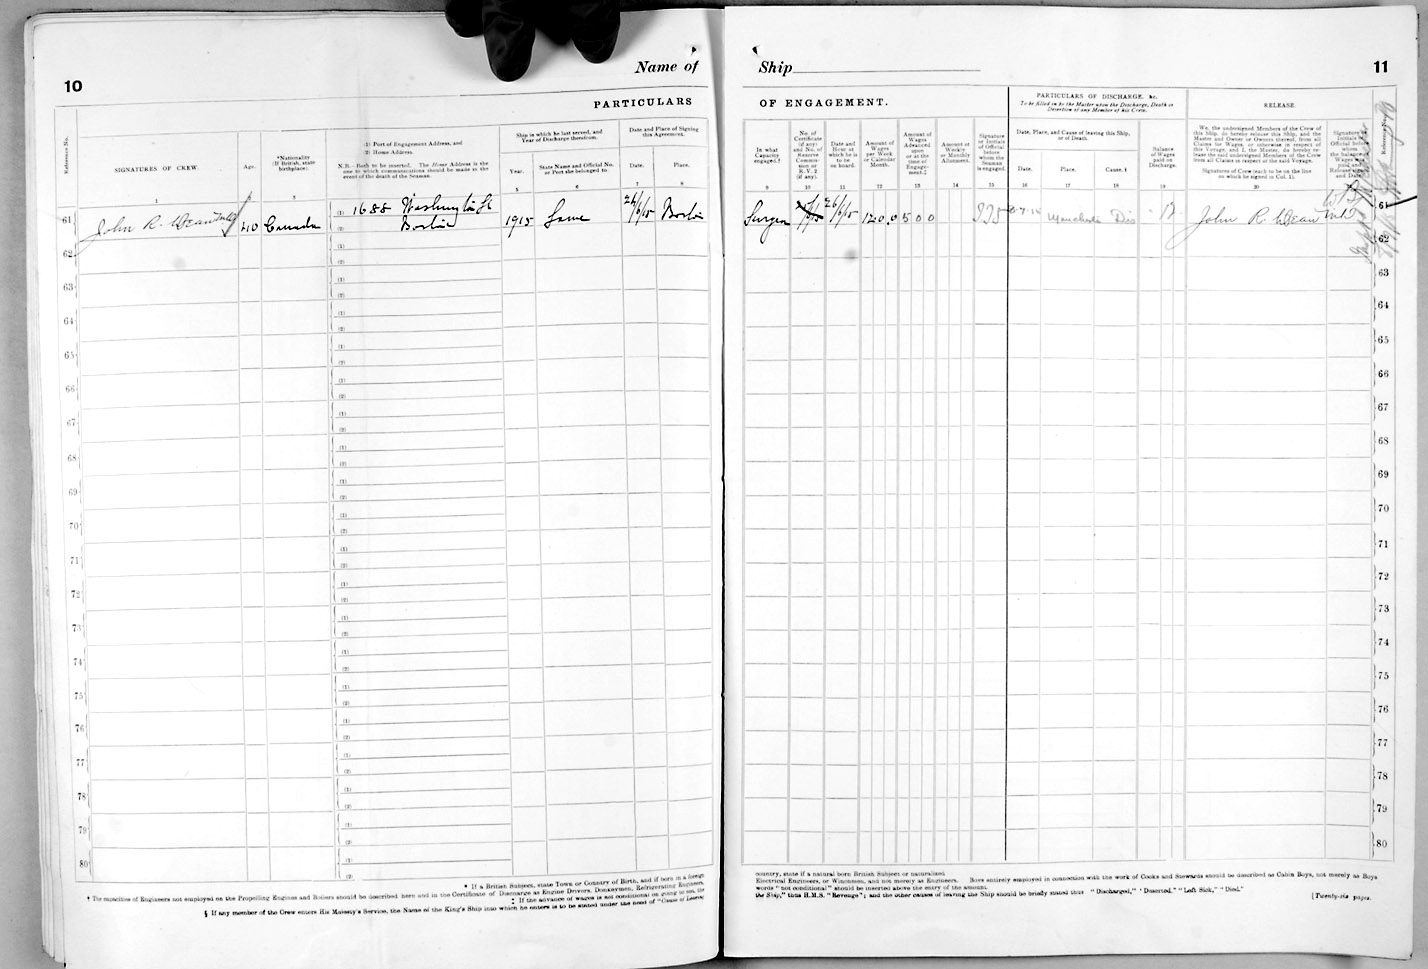 10
Name of
PARTICULARS
Reference No.
SIGNATURES OF CREW.
Age.
*Nationality
(If British, state
birthplace).
(1) Port of Engagement Address, and
(2) Home Address.
N.B.—Both to be inserted. The Home Address is the
one to which communications should be made in the
event of the death of the Seaman.
Ship in which he last served, and
Year of Discharge therefrom.
Year.
State Name and Official No.
or Port she belonged to.
Date and Place of Signing
this Agreement.
Date.
Place.
1
3
5
6
7
8
61
John R.
40
Canada
(1) 1688 Washington St
(2) Boston
1915
Same
26/6/15
Boston
62
63
64
65
66
67
68
69
70
71
72
73
74
75
76
77
78
79
80
* If a British Subject, state Town or Country of Birth, and if born in a foreign
† The capacities of Engineers not employed on the Propelling Engines and Boilers should be described here and in the Certificate of Discharge as Engine Drivers, Donkeymen, Refrigerating Engineers,
‡ If the advance of wages is not conditional on going to sea, the
§ If any member of the Crew enters His Majesty's Service, the Name of the King's Ship into which he enters is to be stated under the head of "Cause of Leaving
Ship
11
OF ENGAGEMENT.
PARTICULARS OF DISCHARGE, &c.
To be filled in by the Master upon the Discharge, Death or
Desertion of any Member of his Crew.
RELEASE.
In what
Capacity
engaged.†
No. of
Certificate
(if any)
and No. of
Reserve
Commis-
sion or
R.V. 2
(if any).
Date and
Hour at
which he is
to be
on board.
Amount of
Wages
per Week
or Calendar
Month.
Amount of
Wages
Advanced
upon
or at the
time of
Engage-
ment.‡
Amount of
Weekly
or Monthly
Allotment.
Signature
or Initials
of Official
before
whom the
Seaman
is engaged.
Date, Place, and Cause of leaving this Ship,
or of Death.
Date.
Place.
Cause.§
Balance
of Wages
paid on
Discharge.
We, the undersigned Members of the Crew of
this Ship, do hereby release this Ship, and the
Master and Owner or Owners thereof, from all
Claims for Wages, or otherwise in respect of
this Voyage, and I, the Master, do hereby re-
lease the said undersigned Members of the Crew
from all Claims in respect of the said Voyage.
Signatures of Crew (each to be on the line
on which he signed in Col. 1).
Reference No.
9
10
11
12
13
14
15
16
17
18
19
20
Surgeon
26/6/15
120 0
5 0 0
Manchester
Dis
John R.
61
62
63
64
65
66
67
68
69
70
71
72
73
74
75
76
77
78
79
80
country, state if a natural born British Subject or naturalized
Electrical Engineers, or Winchmen, and not merely as Engineers. Boys entirely employed in connection with the work of Cooks and Stewards should be described as Cabin Boys, not merely as Boys
words "not conditional" should be inserted above the entry of the amount.
the Ship," thus H.M.S. "Revenge"; and the other causes of leaving the Ship should be briefly stated thus "Discharged," "Deserted," "Left Sick," "Died."
[Twenty-six pages.